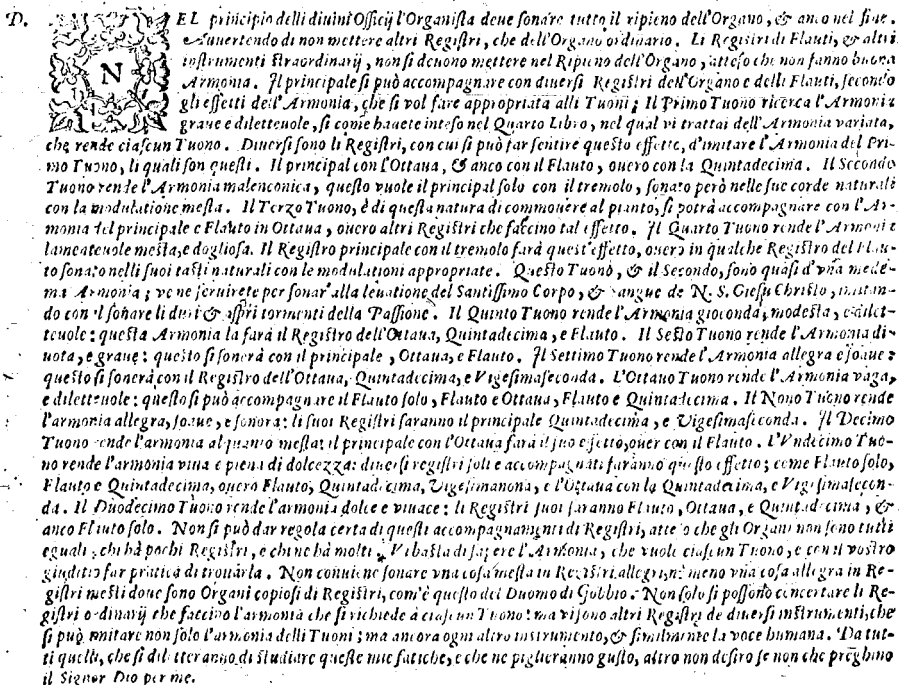 D. NEL principio delli diuini Officij l'Organista deue sonare tutto il ripieno dell'Organo, & anco nel fine.
Auuertendo di non mettere altri Registri, che dell'Organo ordinario. Li Registri di Flauti, & altri
instrumenti straordinarij, non si deuono mettere nel Ripieno dell'Organo, atteso che non fanno buona
Armonia. Il principale si può accompagnare con diuersi Registri dell'Organo e delli Flauti, secondo
gli effetti dell'Armonia, che si vol fare appropriata alli Tuoni; Il Primo Tuono ricerca l'Armonia
graue e dilettevole, si come hauete inteso nel Quarto Libro, nel qual vi trattai dell'Armonia variata,
che rende ciascun Tuono. Diuersi sono li Registri, con cui si può far sentire questo effetto, d'imitare l'Armonia del Pri-
mo Tuono, li quali son questi. Il principal con l'Ottaua, & anco con il Flauto, ouero con la Quintadecima. Il Secondo
Tuono rende l'Armonia malenconica, questo vuole il principal solo con il tremolo, sonato però nelle sue corde naturali
con la modulatione mesta. Il Terzo Tuono, è di questa natura di commouere al pianto, si potrà accompagnare con l'Ar-
monia del principale e Flauto in Ottaua, ouero altri Registri che faccino tal effetto. Il Quarto Tuono rende l'Armonia
lamenteuole mesta, e dogliosa. Il Registro principale con il tremolo farà quest'effetto, ouero in qualche Registro del Flau-
to sonato nelli suoi tasti naturali con le modulationi appropriate. Questo Tuono, & il Secondo, sono quasi d'vna mede-
ma Armonia; ve ne seruirete per sonar' alla leuatione del Santissimo Corpo, & sangue de N. S. Giesu Christo, imitan-
do con il sonare li duri & aspri tormenti della Passione. Il Quinto Tuono rende l'Armonia gioconda, modesta, e dilet-
teuole: questa Armonia la farà il Registro dell'Ottaua, Quintadecima, e Flauto. Il Sesto Tuono rende l'Armonia di-
uota, e graue: questo si sonerà con il principale, Ottaua, e Flauto. Il Settimo Tuono rende l'Armonia allegra e soaue:
questo si sonerà con il Registro dell'Ottaua, Quintadecima, e Vigesimaseconda. L'Ottauo Tuono rende l'Armonia vaga,
e diletteuole: questo si può accompagnare il Flauto solo, Flauto e Ottaua, Flauto e Quintadecima. Il Nono Tuono rende
l'armonia allegra, soaue, e sonora: li suoi Registri saranno il principale Quintadecima, e Vigesimaseconda. Il Decimo
Tuono rende l'armonia alquanto mesta: il principale con l'Ottaua farà il suo effetto, ouer con il Flauto. L'Vndecimo Tuo-
no rende l'armonia viua e piena di dolcezza: diuersi registri soli e accompagnati faranno questo effetto; come Flauto solo,
Flauto e Quintadecima, ouero Flauto, Quintadecima, Vigesimanona, e l'Ottaua con la Quintadecima, e Vigesimasecon-
da. Il Duodecimo Tuono rende l'armonia dolce e viuace: li Registri suoi saranno Flauto, Ottaua, e Quintadecima, &
anco Flauto solo. Non si può dar regola certa di questi accompagnamenti di Registri, atteso che gli Organi non sono tutti
eguali, chi hà pochi Registri, e chi ne hà molti. Vi basta di sapere l'Armonia, che vuole ciascun Tuono, e con il vostro
giuditio far pratica di trouarla. Non conuiene sonare vna cosa mesta in Registri allegri, ne meno vna cosa allegra in Re-
gistri mesti doue sono Organi copiosi di Registri, com'è questo del Duomo di Gobbio. Non solo si possono concertare li Re-
gistri ordinarij che faccino l'armonia che si richiede à ciascun Tuono: ma vi sono altri Registri de diuersi instrumenti, che
si può imitare non solo l'armonia delli Tuoni; ma ancora ogni altro instrumento, & similmente la voce humana. Da tut-
ti quelli, che si diletteranno di studiare queste mie fatiche, e che ne piglieranno gusto, altro non desiro se non che preghino
il Signor Dio per me.